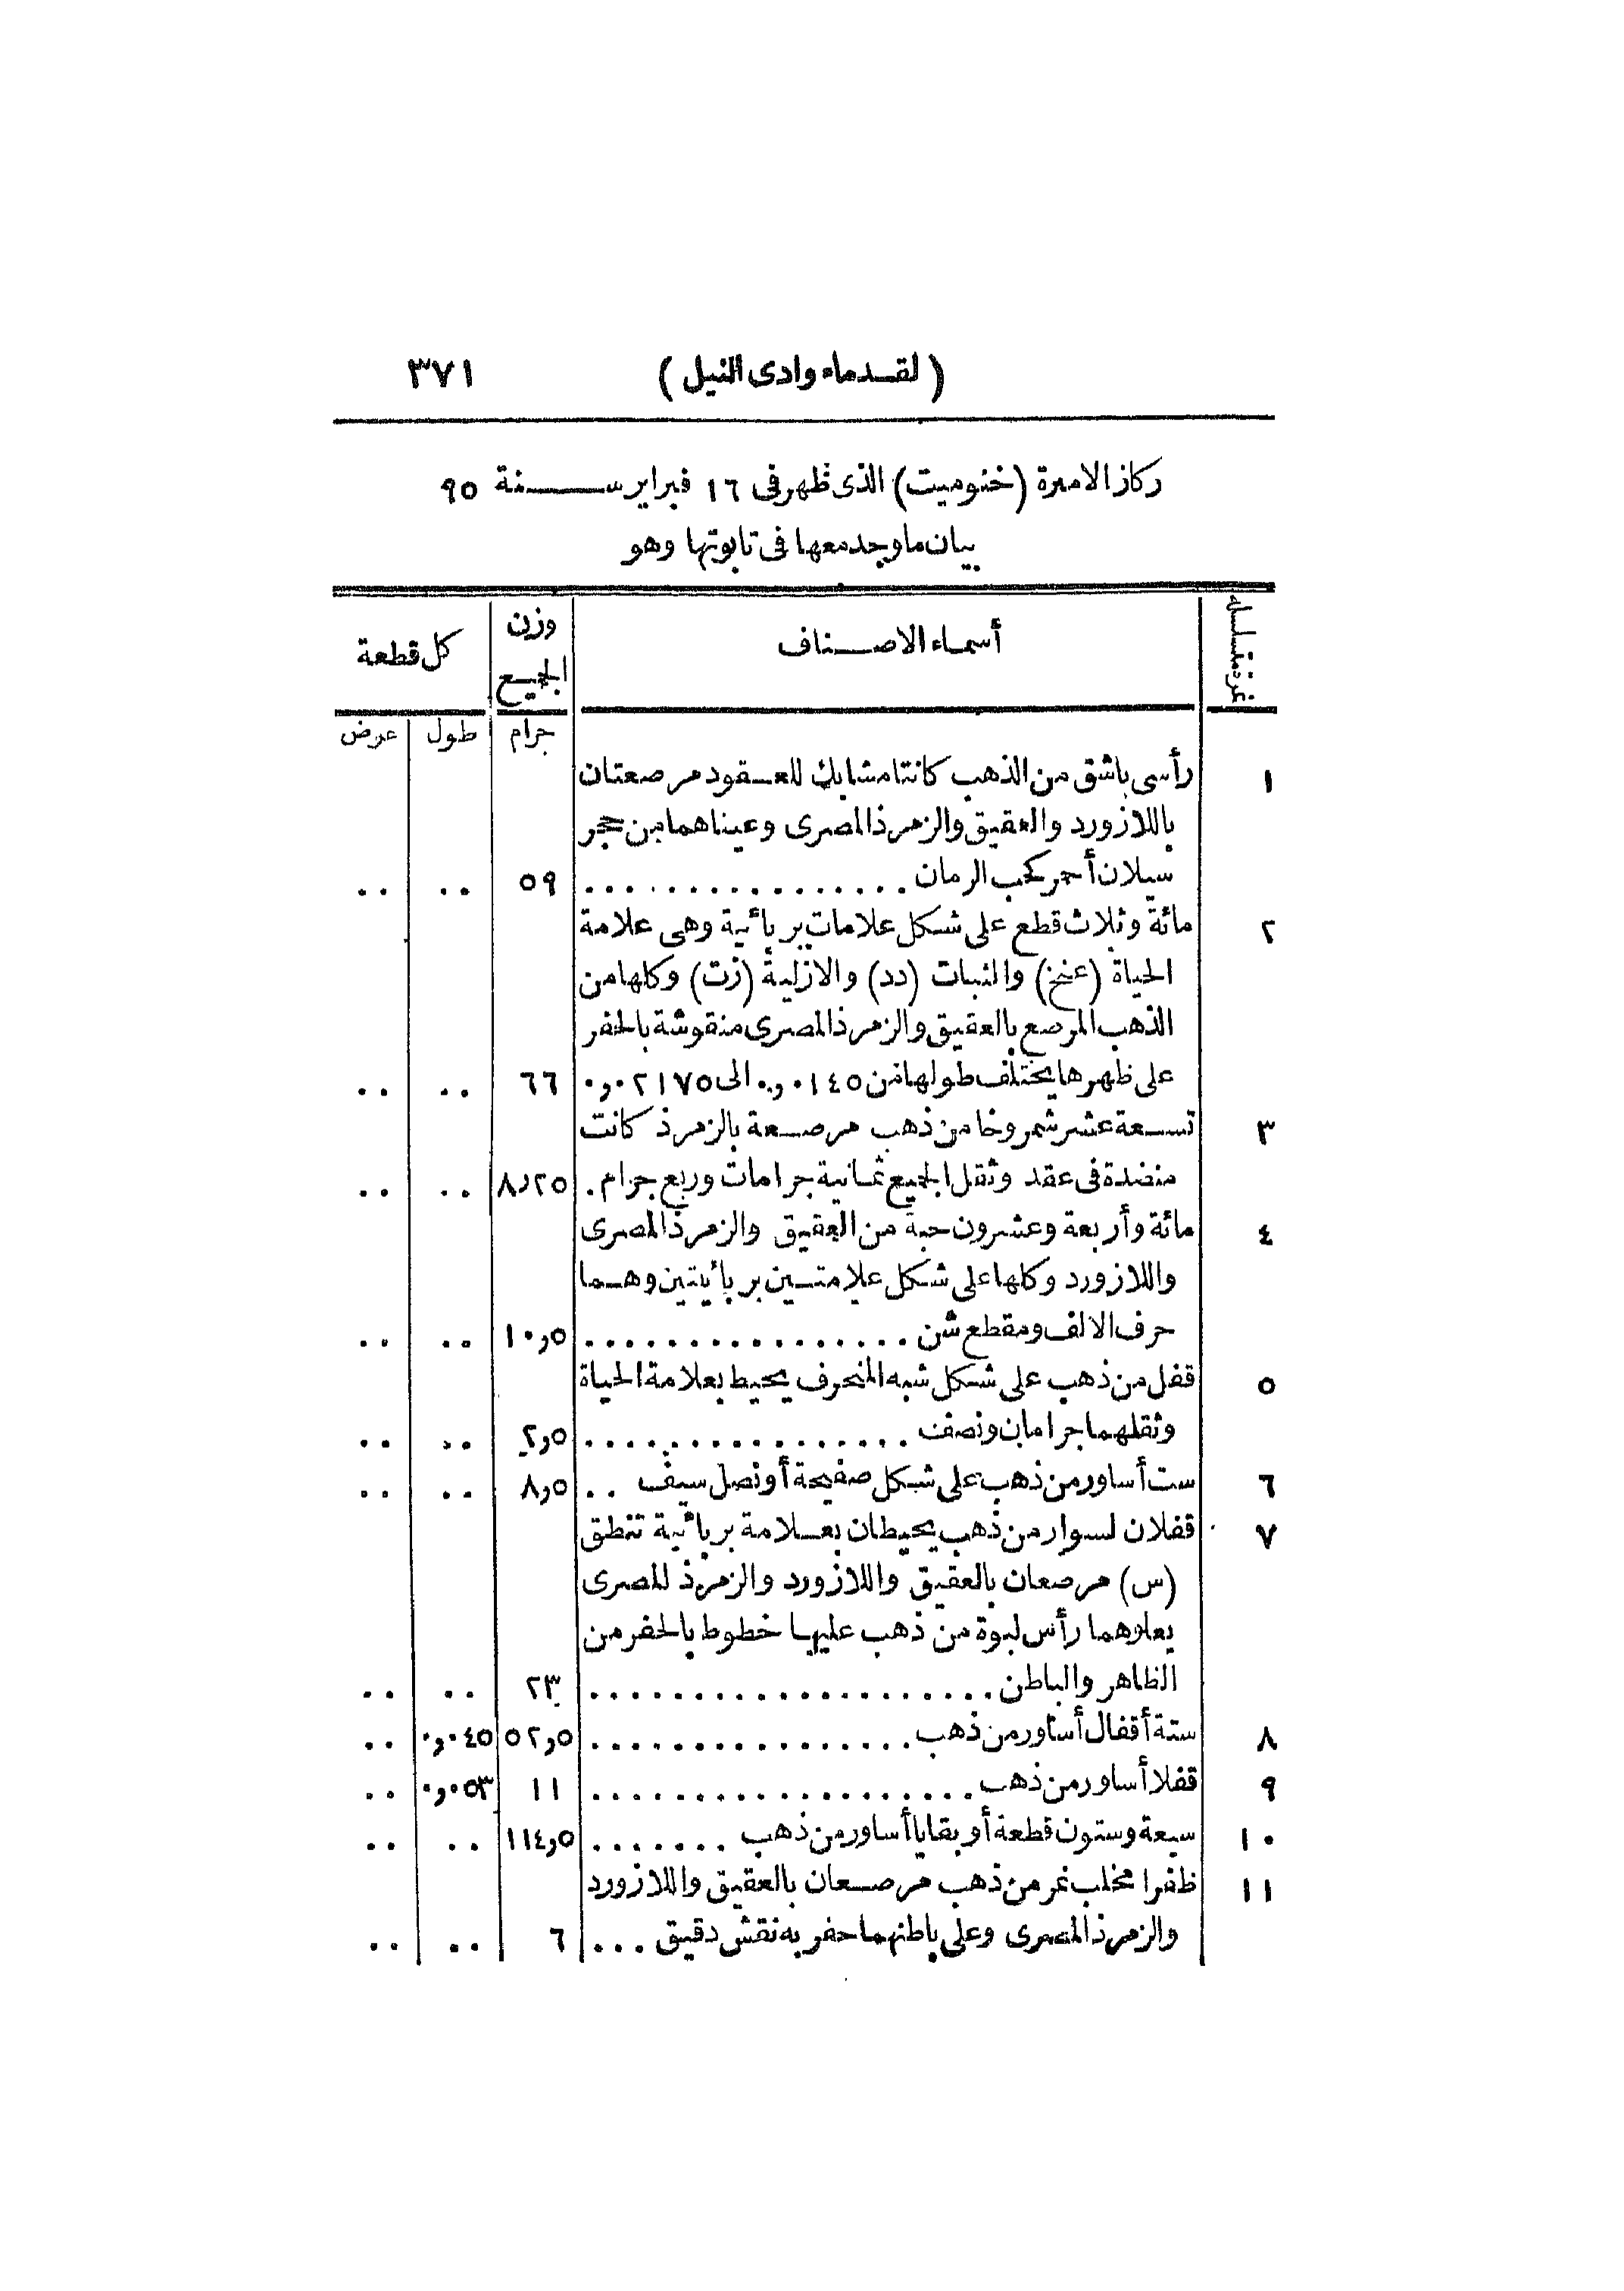 (لقدماء وادى النيل) ٣٧١
ركاز الاميرة (خنوميت) الذى ظهر فى ١٦ فبراير سنة ٩٥
بيان ما وجد معها فى تابوتها وهو
نمرة متسلسله أسماء الاصناف وزن الجميع كل قطعة
جرام طول عرض
١ رأسى باشق من الذهب كانتا مشابك للعقود مرصعتان
باللازورد والعقيق والزمرذ المصرى وعيناهما من حجر
سيلان أحمر كحب الرمان ................ ٥٩ .. ..
٢ مائة وثلاث قطع على شكل علامات بربائية وهى علامة
الحياة (عنخ) والثبات (دد) والازلية (زت) وكلها من
الذهب المرصع بالعقيق والزمرذ المصرى منقوشة بالحفر
على ظهرها يختلف طولها من ٠١٤٥ر٠ الى ٠٢١٧٥ر٠ ٦٦ .. ..
٣ تسعة عشر شمروخا من ذهب مرصعة بالزمرذ كانت
منضدة فى عقد وثقل الجميع ثمانية جرامات وربع جرام. ٨ر٢٥ .. ..
٤ مائة وأربعة وعشرون حبة من العقيق والزمرذ المصرى
واللازورد وكلها على شكل علامتين بربائيتين وهما
حرف الالف ومقطع شن ................ ١٠ر٥ .. ..
٥ قفل من ذهب على شكل شبه المنحرف يحيط بعلامة الحياة
وثقلهما جرامان ونصف ................ ٢ر٥ .. ..
٦ ست أساور من ذهب على شكل صفيحة أو نصل سيف .. ٨ر٥ .. ..
٧ قفلان لسوار من ذهب يحيطان بعلامة بربائية تنطق
(س) مرصعان بالعقيق واللازورد والزمرذ المصرى
يعلوهما رأس لبوة من ذهب عليها خطوط بالحفر من
الظاهر والباطن .................... ٢٣ .. ..
٨ ستة أقفال أساور من ذهب ................ ٥٢ر٥ ٠٤٥ر٠ ..
٩ قفلا أساور من ذهب ................... ١١ ٠٥٣ر٠ ..
١٠ سبعة وستون قطعة أو بقايا أساور من ذهب ....... ١١٤ر٥ .. ..
١١ ظفرا مخلب نمر من ذهب مرصعان بالعقيق واللازورد
والزمرذ المصرى وعلى باطنهما حفر به نقش دقيق ... ٦ .. ..